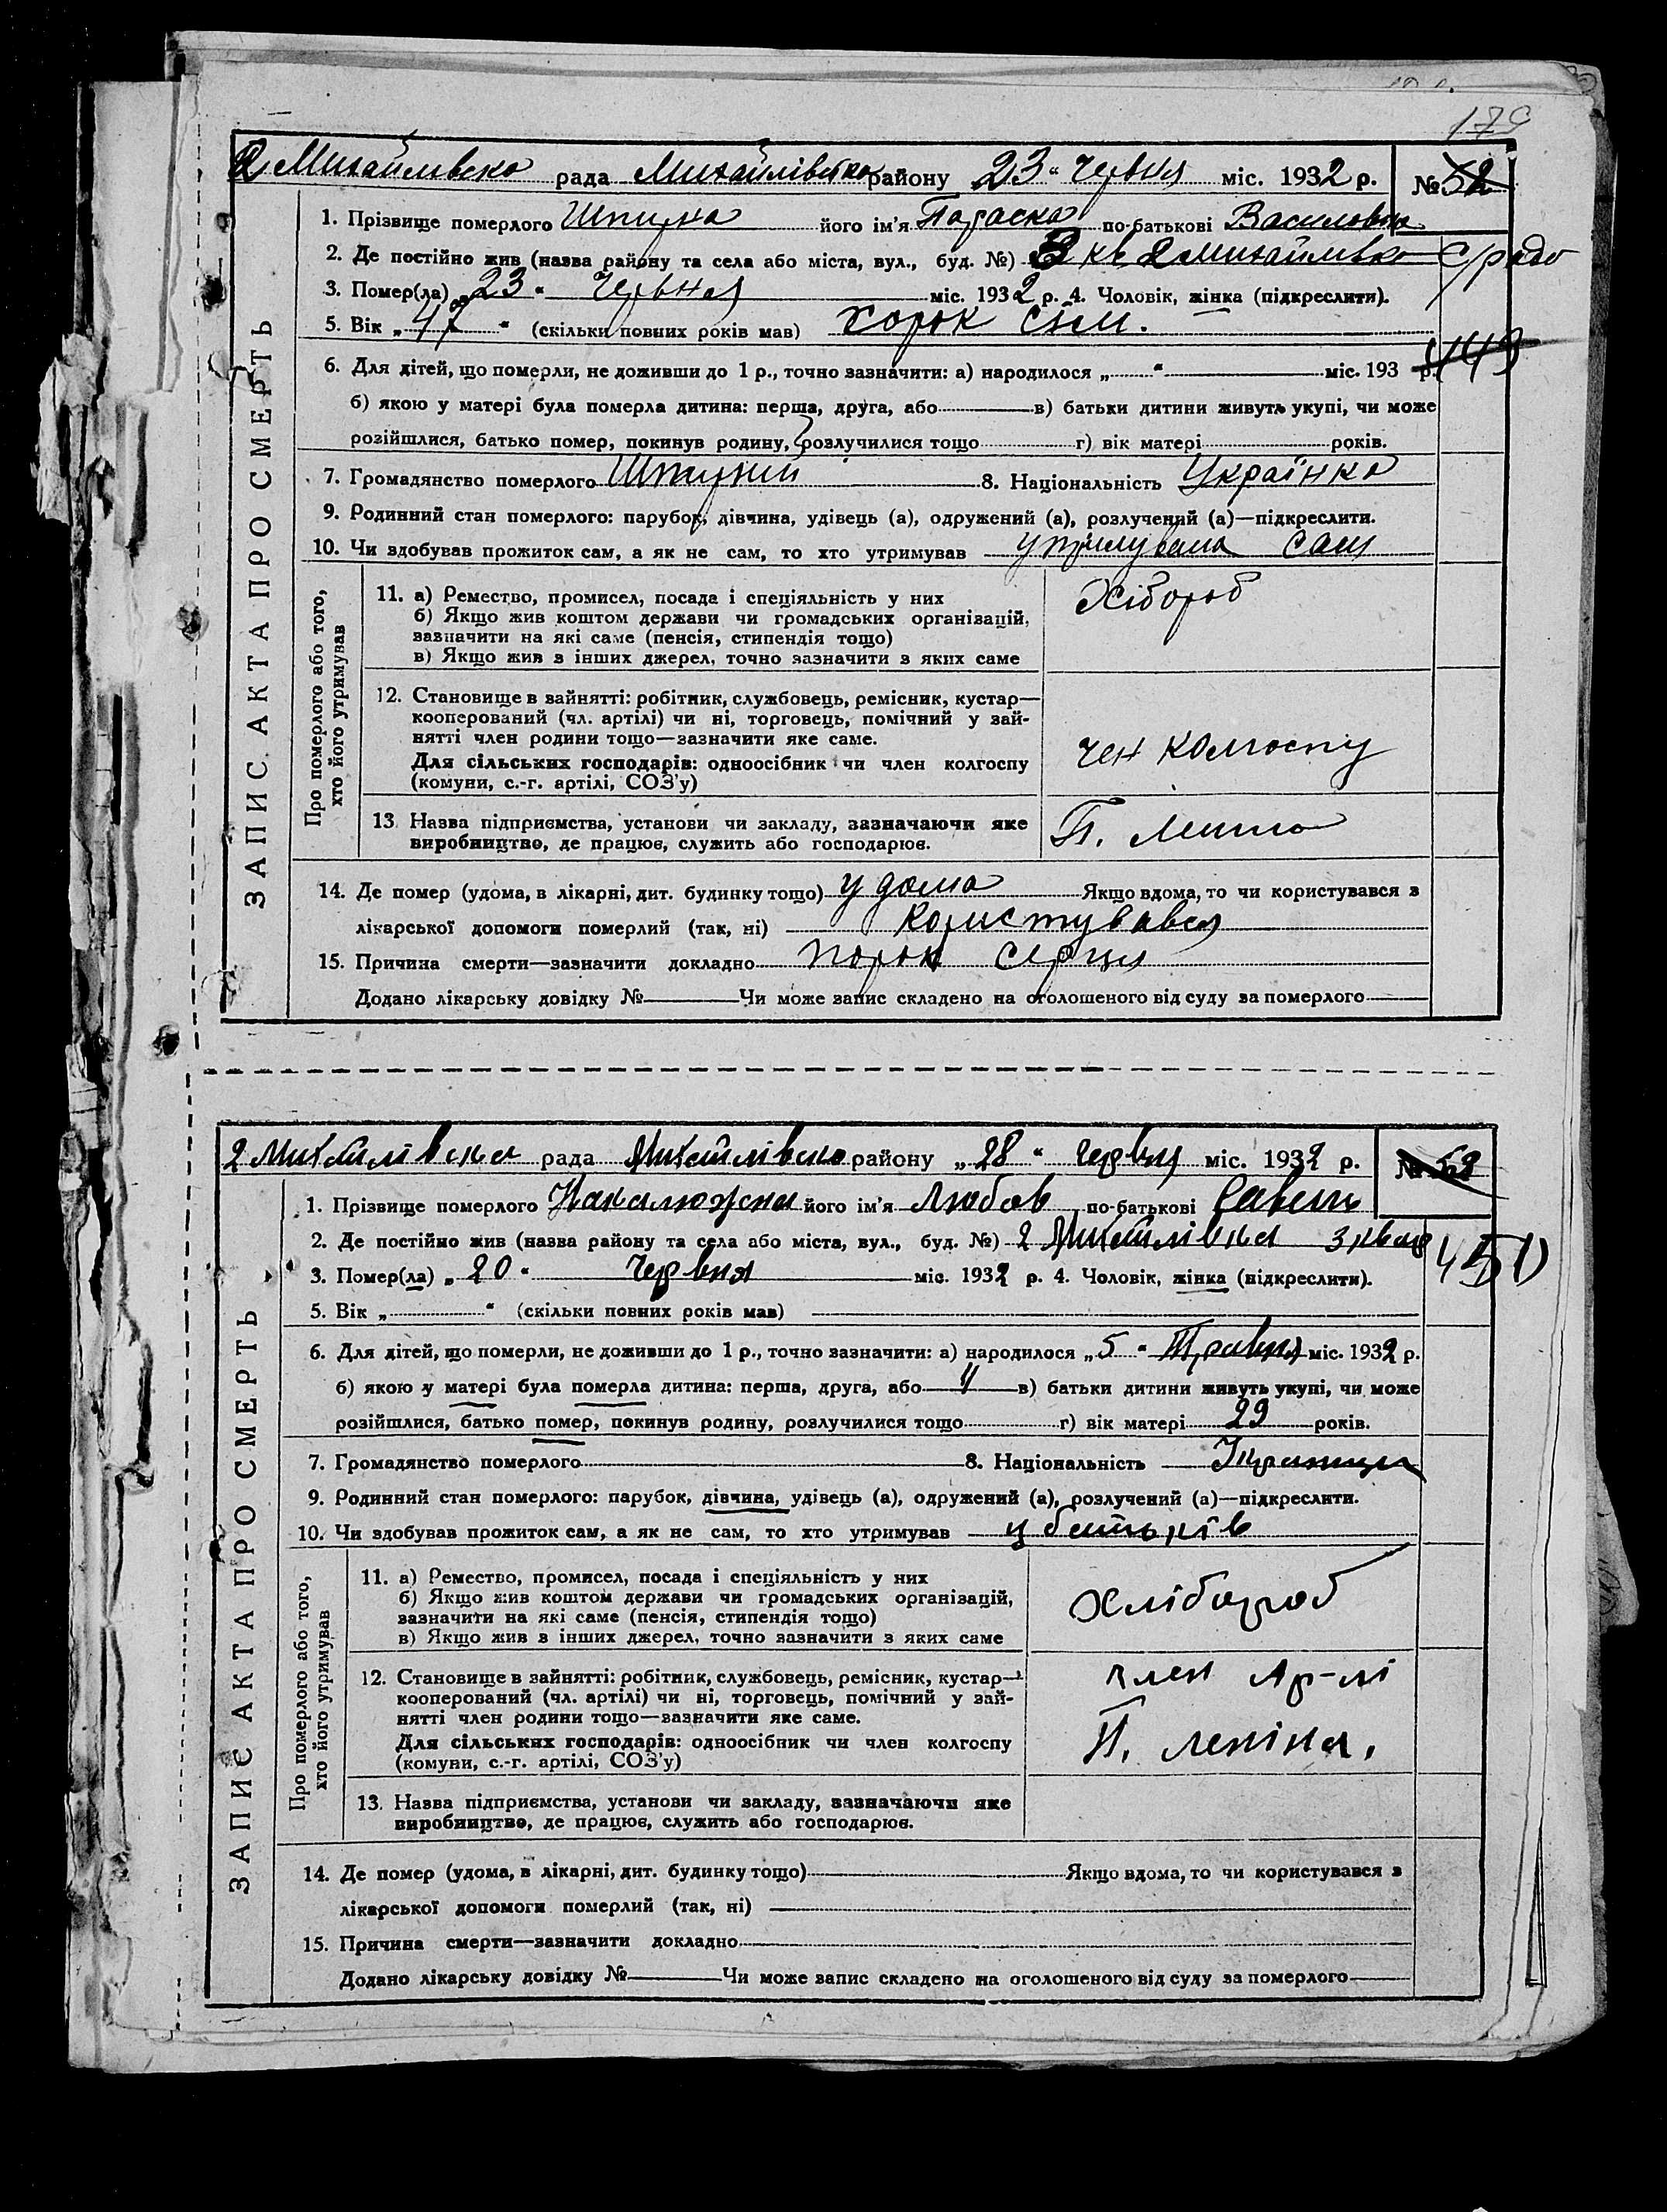 179
2 Михайлівська рада Михайлівська району „23“ Червня міс. 1932 р. № 52
1. Прізвище померлого його ім'я Параска по-батькові Василовна
2. Де постійно жив (назва району та села або міста, вул., буд. №) 3 кв 2 Михайлівка с/рада
3. Помер(ла) „23“ Червня міс. 1932 р. 4. Чоловік, жінка (підкреслити).
5. Вік „47“ (скільки повних років мав) сорок сім.
449
6. Для дітей, що померли, не доживши до 1 р., точно зазначити: а) народилося „ “ міс. 193 р.
б) якою у матері була померла дитина: перша, друга, або в) батьки дитини живуть укупі, чи може
розійшлися, батько помер, покинув родину, розлучилися тощо г) вік матері років.
7. Громадянство померлого 8. Національність Українка
9. Родинний стан померлого: парубок, дівчина, удівець (а), одружений (а), розлучений (а)—підкреслити.
10. Чи здобував прожиток сам, а як не сам, то хто утримував
ЗАПИС АКТА ПРО СМЕРТЬ
Про померлого або того,
хто його утримував
11. а) Ремество, промисел, посада і спеціяльність у них
б) Якщо жив коштом держави чи громадських організацій,
зазначити на які саме (пенсія, стипендія тощо)
в) Якщо жив з інших джерел, точно зазначити з яких саме
Хібороб
12. Становище в зайнятті: робітник, службовець, ремісник, кустар—
кооперований (чл. артілі) чи ні, торговець, помічний у зай-
нятті член родини тощо—зазначити яке саме.
Для сільських господарів: одноосібник чи член колгоспу
(комуни, с.-г. артілі, СОЗ'у)
чен колгоспу
13. Назва підприємства, установи чи закладу, зазначаючи яке
виробництво, де працює, служить або господарює.
П.
14. Де помер (удома, в лікарні, дит. будинку тощо) у дома Якщо вдома, то чи користувався з
лікарської допомоги померлий (так, ні) користувався
15. Причина смерти—зазначити докладно порок серця
Додано лікарську довідку № Чи може запис складено на оголошеного від суду за померлого
2 Михайлівська рада Михайлівсько району „28“ червня міс. 1932 р. № 53
1. Прізвище померлого його ім'я Любов по-батькові
2. Де постійно жив (назва району та села або міста, вул., буд. №) 2 Михайлівка 3 квар
450
3. Помер(ла) „20“ Червня міс. 1932 р. 4. Чоловік, жінка (підкреслити).
5. Вік „ “ (скільки повних років мав)
6. Для дітей, що померли, не доживши до 1 р., точно зазначити: а) народилося „5“ Травня міс. 1932 р.
б) якою у матері була померла дитина: перша, друга, або в) батьки дитини живуть укупі, чи може
розійшлися, батько помер, покинув родину, розлучилися тощо г) вік матері 29 років.
7. Громадянство померлого 8. Національність
9. Родинний стан померлого: парубок, дівчина, удівець (а), одружений (а), розлучений (а)—підкреслити.
10. Чи здобував прожиток сам, а як не сам, то хто утримував у батьків
ЗАПИС АКТА ПРО СМЕРТЬ
Про померлого або того,
хто його утримував
11. а) Ремество, промисел, посада і спеціяльність у них
б) Якщо жив коштом держави чи громадських організацій,
зазначити на які саме (пенсія, стипендія тощо)
в) Якщо жив з інших джерел, точно зазначити з яких саме
Хлібороб
12. Становище в зайнятті: робітник, службовець, ремісник, кустар—
кооперований (чл. артілі) чи ні, торговець, помічний у зай-
нятті член родини тощо—зазначити яке саме.
Для сільських господарів: одноосібник чи член колгоспу
(комуни, с.-г. артілі, СОЗ'у)
Член Ар-лі
П. Леніна.
13. Назва підприємства, установи чи закладу, зазначаючи яке
виробництво, де працює, служить або господарює.
14. Де помер (удома, в лікарні, дит. будинку тощо) Якщо вдома, то чи користувався з
лікарської допомоги померлий (так, ні)
15. Причина смерти—зазначити докладно
Додано лікарську довідку № Чи може запис складено на оголошеного від суду за померлого